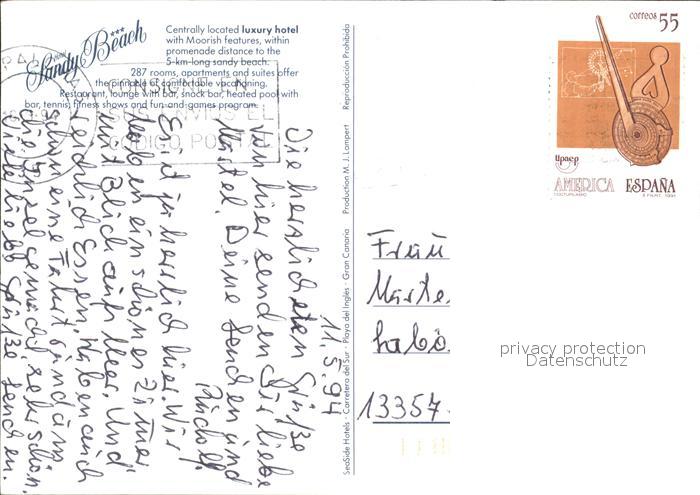 hotel
Sandy Beach
Centrally located luxury hotel
with Moorish features, within
promenade distance to the
5-km-long sandy beach.
287 rooms, apartments and suites offer
the pinnacle of comfortable vacationing.
Restaurant, lounge with bar, snack bar, heated pool with
bar, tennis, fitness shows and fun-and-games program.
CONSIGNE EN
SUS ENVIOS EL
CODIGO POSTAL
11.5.94
Die herzlichsten Grüße
von hier senden Dir liebe
Märtel. Deine Gendren und
Rudolf.
Es ist ja herrlich hier. Wir
haben ein schönes Zimmer
mit Blick aufs Meer. Und
reichlich Essen. Haben auch
schon eine Fahrt rund um
die Insel gemacht, sehr schön.
Viele liebe Grüße senden.
SeaSide Hotels · Carretera del Sur · Playa del Inglés · Gran Canaria Production M. J. Lampert Reproducción Prohibida
correos 55
Upaep
AMÉRICA ESPAÑA
F.N.M.T. 1991
Frau
Märte
Labo
13357
privacy protection
Datenschutz